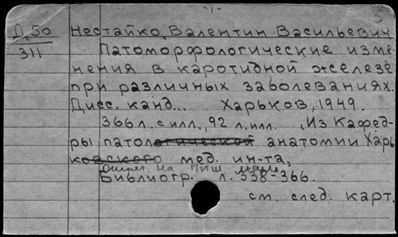 -1-
Д.50 Нестайко, Валентин Васильевич
311 Патоморфологические изме-
нения в каротидной железе
при различных заболеваниях.
Дисс. канд... Харьков, 1949.
366л. с илл., 92 л. илл. , Из Кафед-
ры патологической анатомии Харь-
ковского мед. ин-та,
Отпеч. на пиш. маш.
Библиогр. л. 338-366.
см. след. карт.